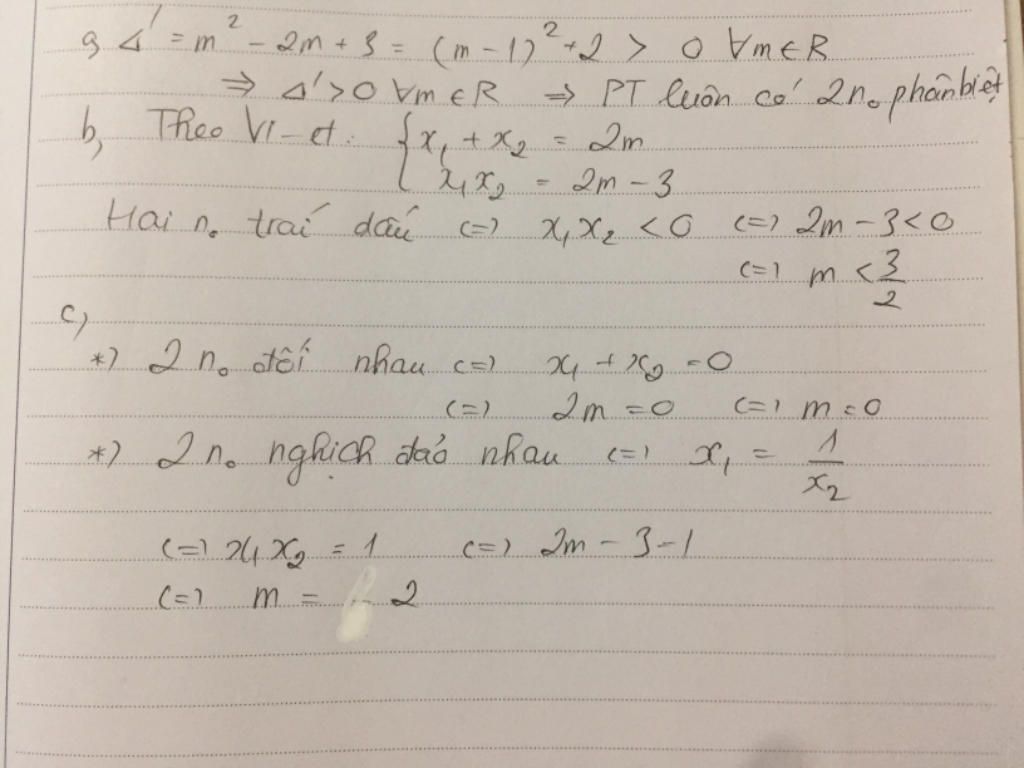 a, Δ' = m² - 2m + 3 = (m - 1)² + 2 > 0 ∀m ∈ R
⇒ Δ' > 0 ∀m ∈ R ⇒ PT luôn có 2 n₀ phân biệt
b, Theo Vi-et: { x₁ + x₂ = 2m
x₁x₂ = 2m - 3
Hai n₀ trái dấu <=> x₁x₂ < 0 <=> 2m - 3 < 0
<=> m < 3/2
c,
*) 2 n₀ đối nhau <=> x₁ + x₂ = 0
<=> 2m = 0 <=> m = 0
*) 2 n₀ nghịch đảo nhau <=> x₁ = 1/x₂
<=> x₁x₂ = 1 <=> 2m - 3 - 1
<=> m = 2